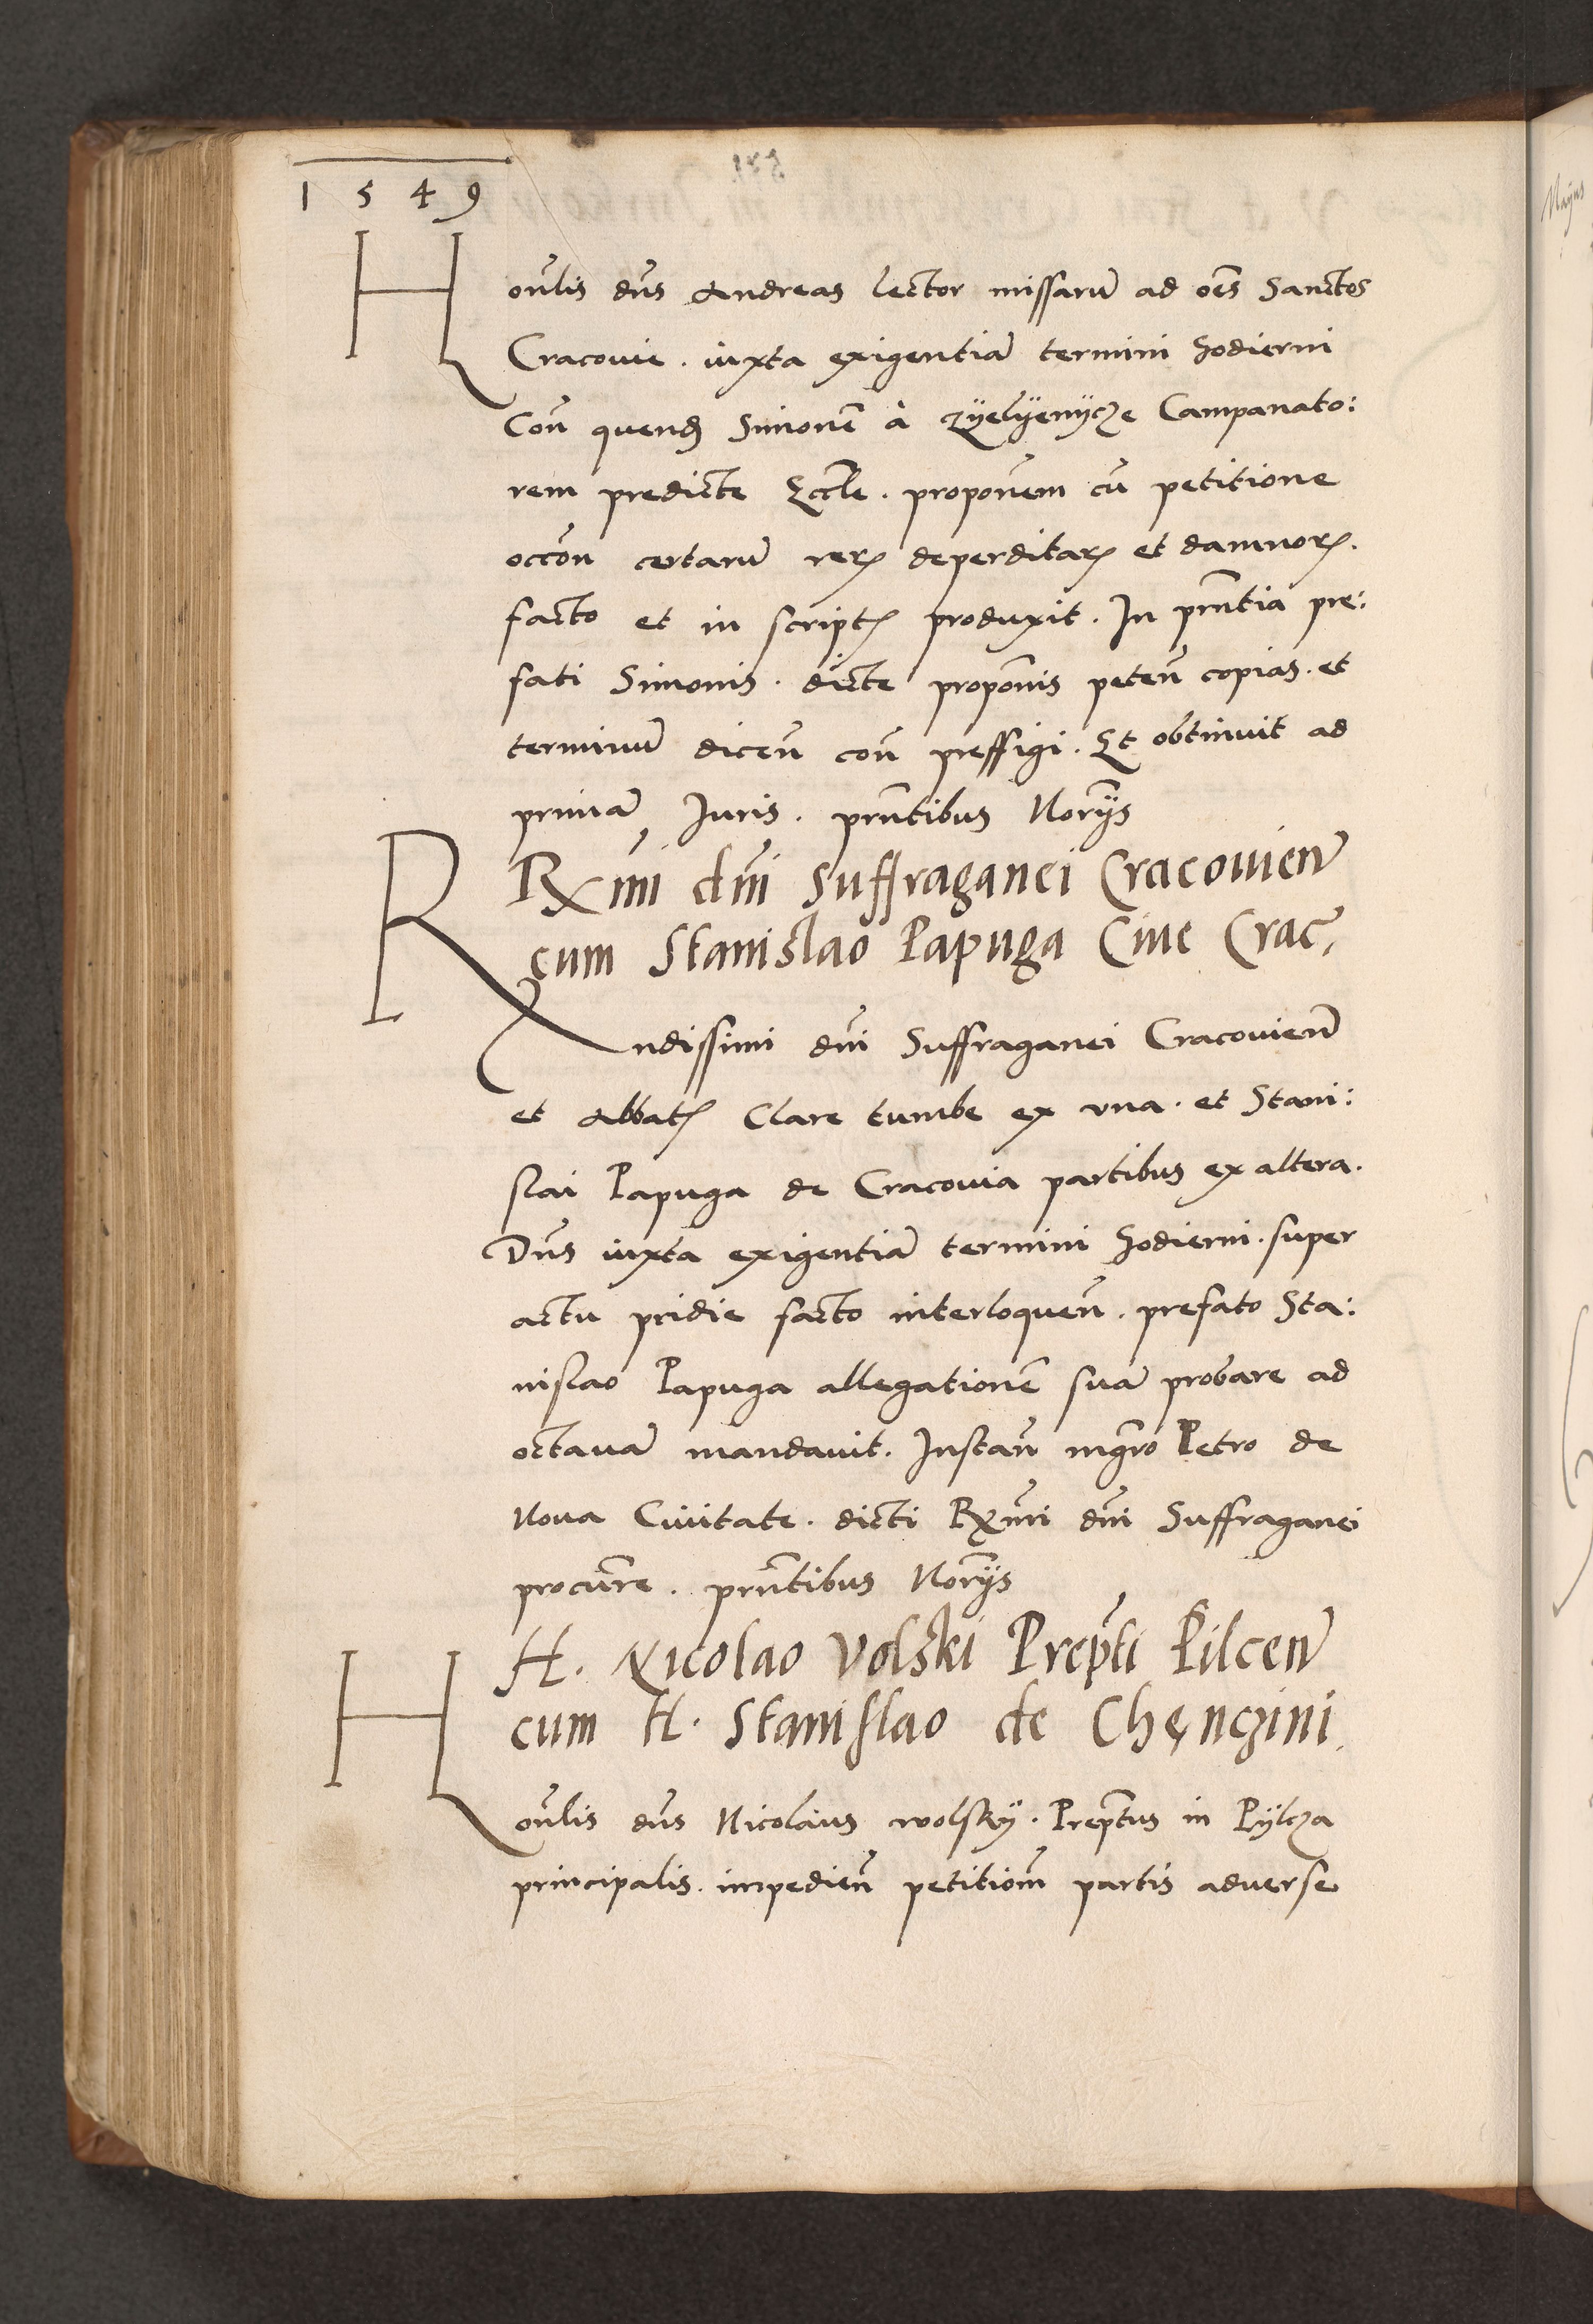 1 5 4 9
Hon̄lis dn̄s Andreas lector missarū ad oēs Sanctos
Cracovie . iuxta exigentiā termini hodierni
Con̄ quendā Simonē à Zÿelÿenÿcze Campanato:
rem predicte Eccl̄e . proponēm cū petitione
occōn certarū rerꝝ deperditarꝝ et damnorꝝ.
facto et in scriptꝭ produxit . In pn̄tia pre:
fati Simonis . dicte propōnis peten̄ copias . et
terminū dicen̄ con̄ preffigi . Et obtinuit ad
primā Juris . pn̄tibus Nor̄ÿs
Rx̄mi dn̄i Suffraganei Cracovien̄
cum Stanislao Papuga Cive Crac̄,
Rndissimi dn̄i Suffraganei Cracovien̄
et Abbatꝭ Clare tumbe ex una . et Stani:
slai Papuga de Cracovia partibus ex altera .
Dn̄s iuxta exigentiā termini hodierni . super
actu pridie facto interloquen̄ . prefato Sta:
nislao Papuga allegationē suā probare ad
octavā mandavit . Instan̄ mgr̄o Petro de
Nova Civitate . dicti Rx̄mi dn̄i Suffraganei
procur̄e . prn̄tibus Nor̄ÿs
H . Nicolao Volski Prep̄ti Pilcen̄
cum H . Stanislao de Chęnczini .
Hon̄lis dn̄s Nicolaus wolskÿ . Prep̄tus in Pÿlcza
principalis . impedien̄ petitiom̄ partis adverse